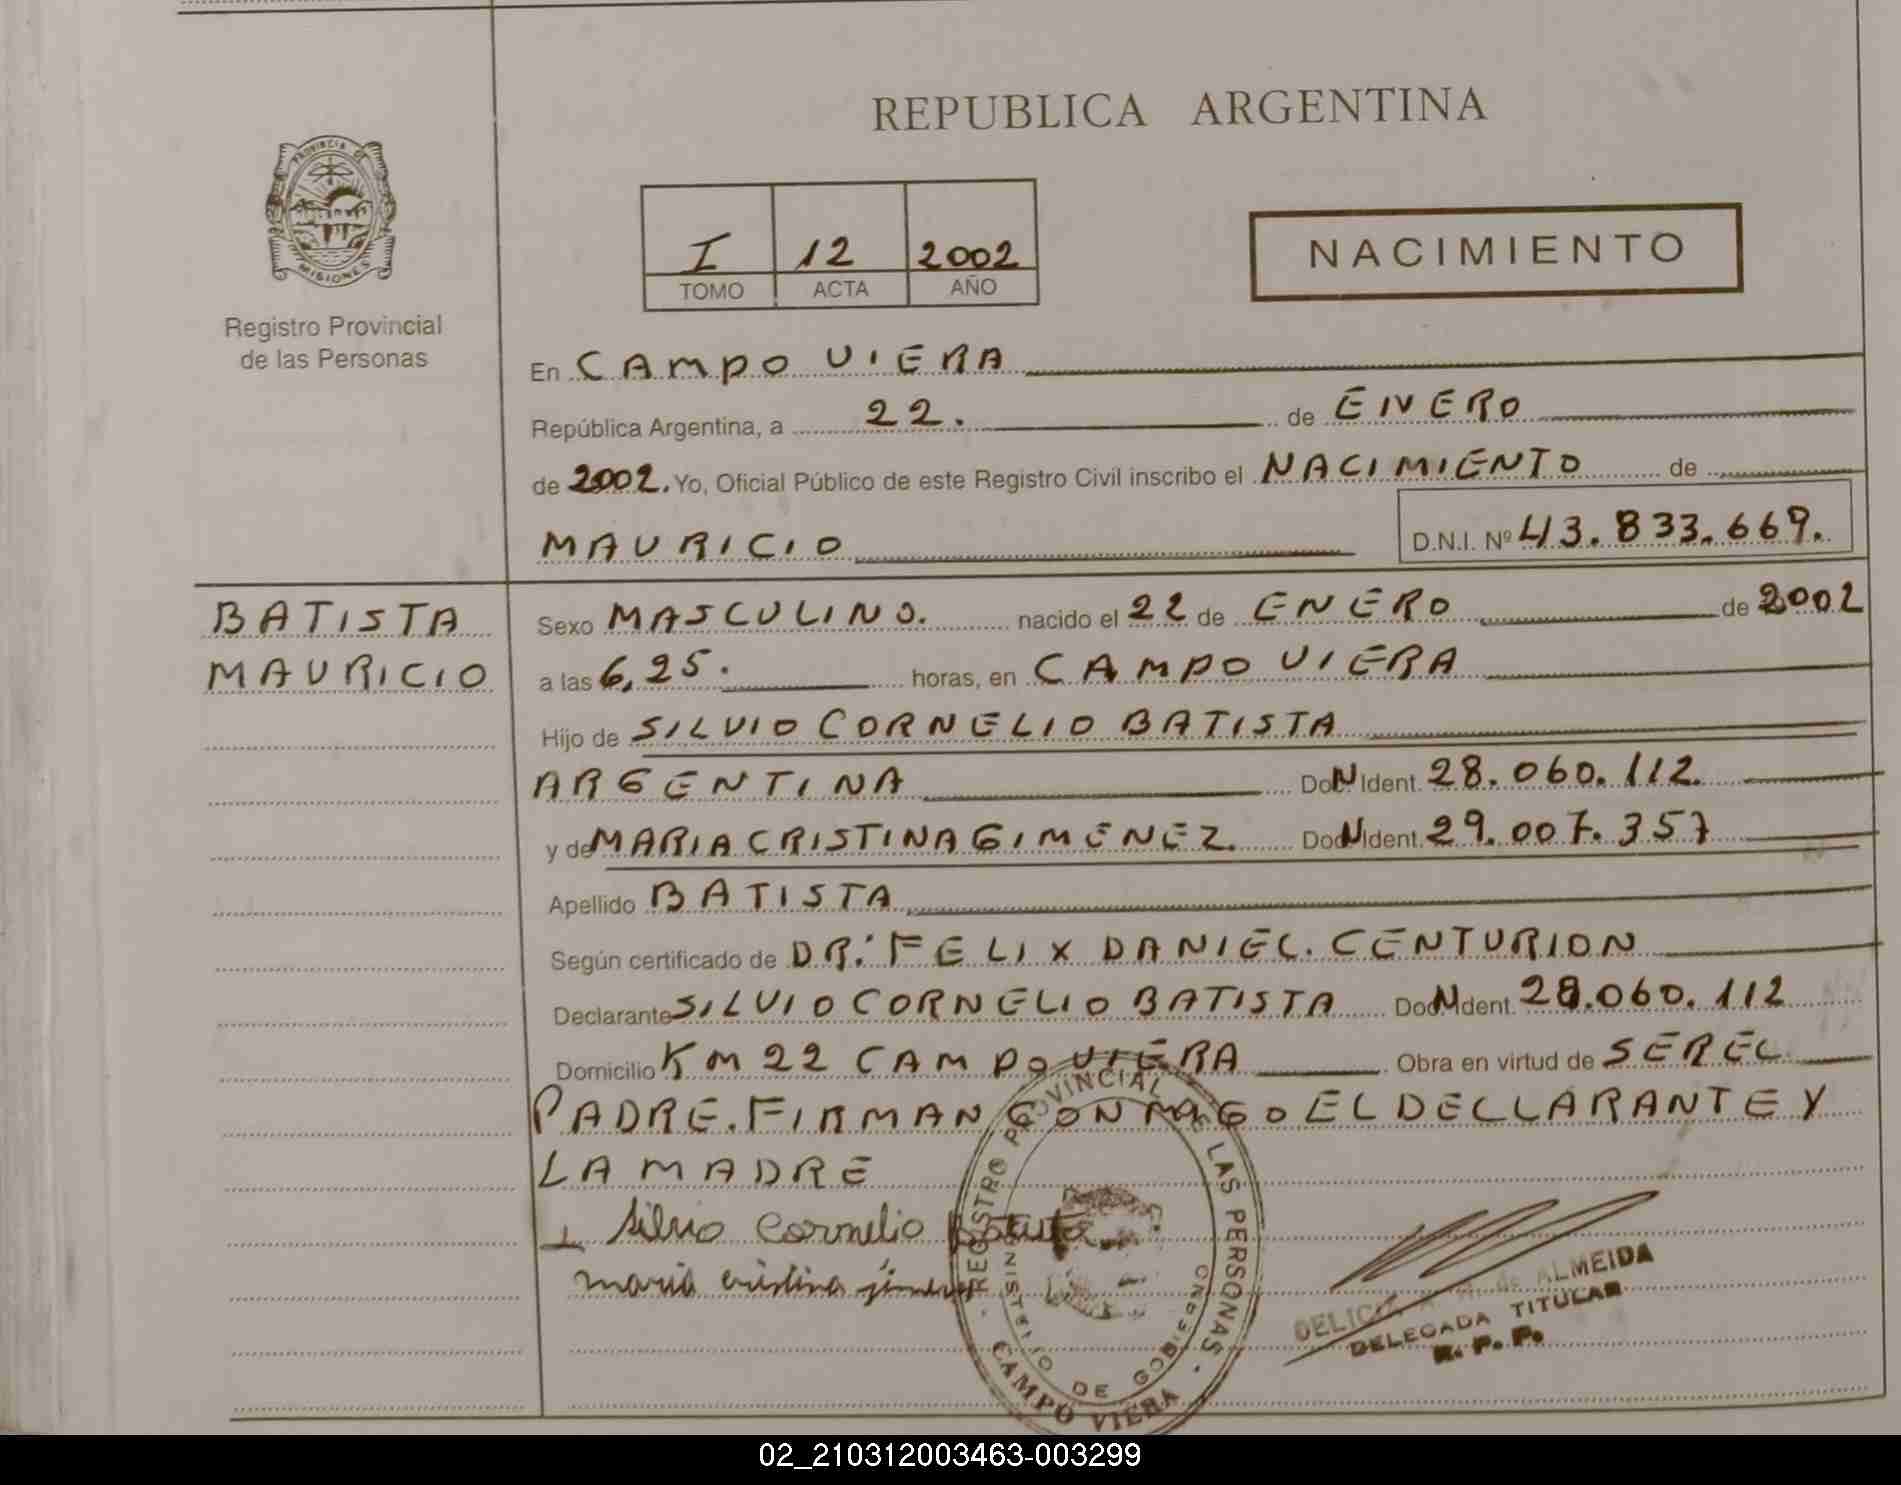 REPUBLICA ARGENTINA
PROVINCIA DE
MISIONES
Registro Provincial
de las Personas
I 12 2002
TOMO ACTA AÑO
NACIMIENTO
En CAMPO VIERA
República Argentina, a 22. de ENERO
de 2002. Yo, Oficial Público de este Registro Civil inscribo el NACIMIENTO de
MAURICIO D.N.I. Nº 43.833.669.
BATISTA
MAURICIO
Sexo MASCULINO. nacido el 22 de ENERO de 2002
a las 6,25. horas, en CAMPO VIERA
Hijo de SILVIO CORNELIO BATISTA
ARGENTINA Doc. N Ident. 28.060.112.
y de MARIA CRISTINA GIMENEZ. Doc. N Ident. 29.007.357
Apellido BATISTA
Según certificado de DR: FELIX DANIEL. CENTURION
Declarante SILVIO CORNELIO BATISTA Doc. N Ident. 28.060.112
Domicilio KM 22 CAMPO VIERA Obra en virtud de SER EL
PADRE. FIRMAN CONMIGO EL DECLARANTE Y
LA MADRE
Silvio Cornelio Batista
maria cristina jimenez
REGISTRO PROVINCIAL DE LAS PERSONAS
MINISTERIO DE GOBIERNO
CAMPO VIERA
de ALMEIDA
DELEGADA TITULAR
R. P. P.
02_210312003463-003299